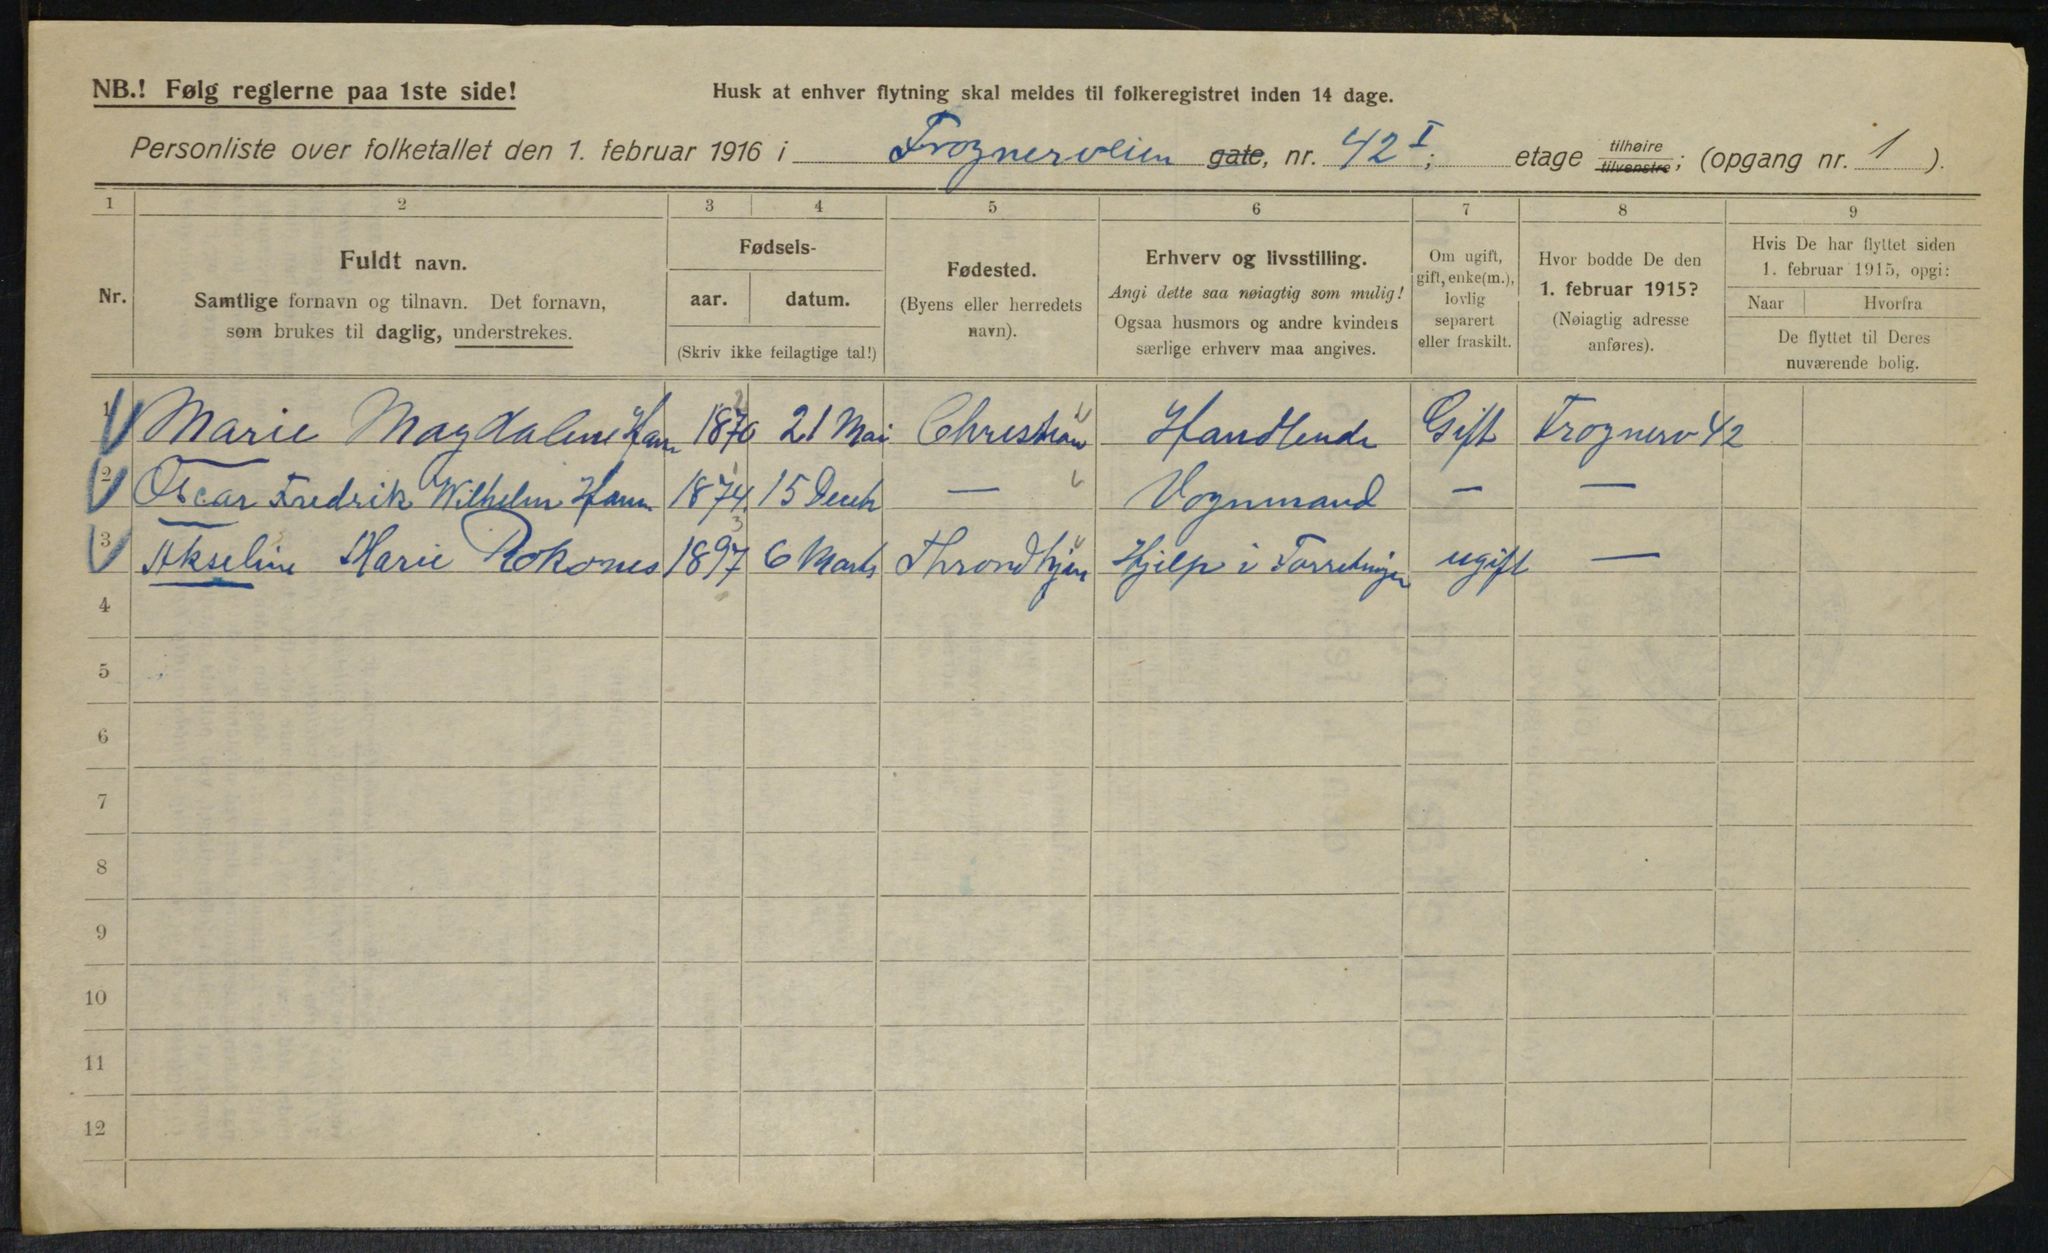 NB.! Følg reglerne paa 1ste side!
Husk at enhver flytning skal meldes til folkeregistret inden 14 dage.
Personliste over folketallet den 1. februar 1916 i Frognerveien gate, nr. 42 I; etage tilhøire tilvenstre; (opgang nr. 1 ).
1 2 3 4 5 6 7 8 9
Nr.
Fuldt navn.
Samtlige fornavn og tilnavn. Det fornavn,
som brukes til daglig, understrekes.
Fødsels-
aar. datum.
(Skriv ikke feilagtige tal!)
Fødested.
(Byens eller herredets
navn).
Erhverv og livsstilling.
Angi dette saa nøiagtig som mulig!
Ogsaa husmors og andre kvinders
særlige erhverv maa angives.
Om ugift,
gift, enke(m.),
lovlig
separert
eller fraskilt.
Hvor bodde De den
1. februar 1915?
(Nøiagtig adresse
anføres).
Hvis De har flyttet siden
1. februar 1915, opgi:
Naar Hvorfra
De flyttet til Deres
nuværende bolig.
1 Marie Magdalene 1870 21 Mai Christian Handlende Gift Frognerv 42
2 Oscar Fredrik Wilhelm 1874 15 Decb — Vognmand — —
3 Akseline Marie 1897 6 Marts Throndhjem Hjelp i Forretningen ugift —
4
5
6
7
8
9
10
11
12